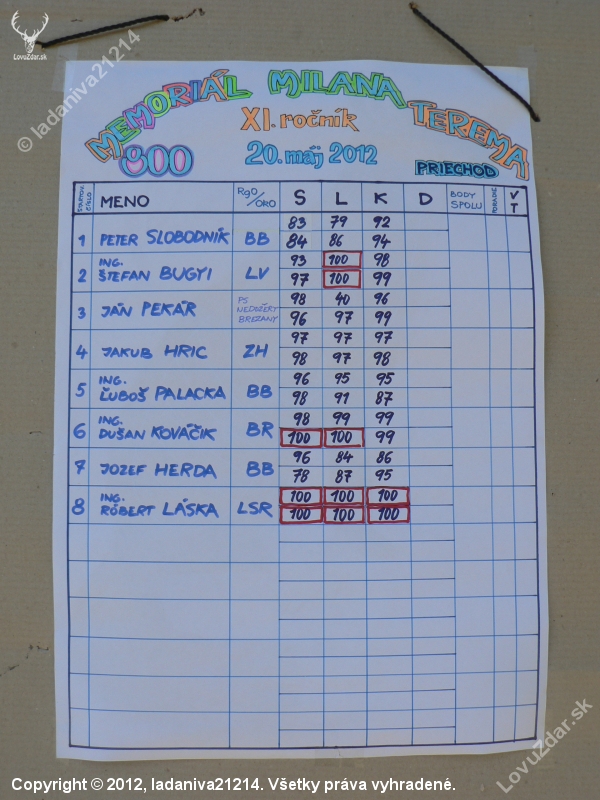 LovuZdar.sk
© ladaniva21214
MEMORIÁL MILANA TEREMA
XI. ročník
800 20. máj 2012 PRIECHOD
ŠTARTOV. ČÍSLO MENO RgO/OKO S L K D BODY SPOLU PORADIE V T
83 79 92
1 PETER SLOBODNÍK BB 84 86 94
ING. 93 100 98
2 ŠTEFAN BUGYI LV 97 100 99
3 JÁN PEKÁR PS NEDOŽERY BREZANY 98 40 96
96 97 99
4 JAKUB HRIC ZH 97 97 97
98 97 98
5 ING. 96 95 95
ĽUBOŠ PALACKA BB 98 91 87
ING. 98 99 99
6 DUŠAN KOVÁČIK BR 100 100 99
7 JOZEF HERDA BB 96 84 86
78 87 95
ING. 100 100 100
8 RÓBERT LÁSKA LSR 100 100 100
LovuZdar.sk
Copyright © 2012, ladaniva21214. Všetky práva vyhradené.